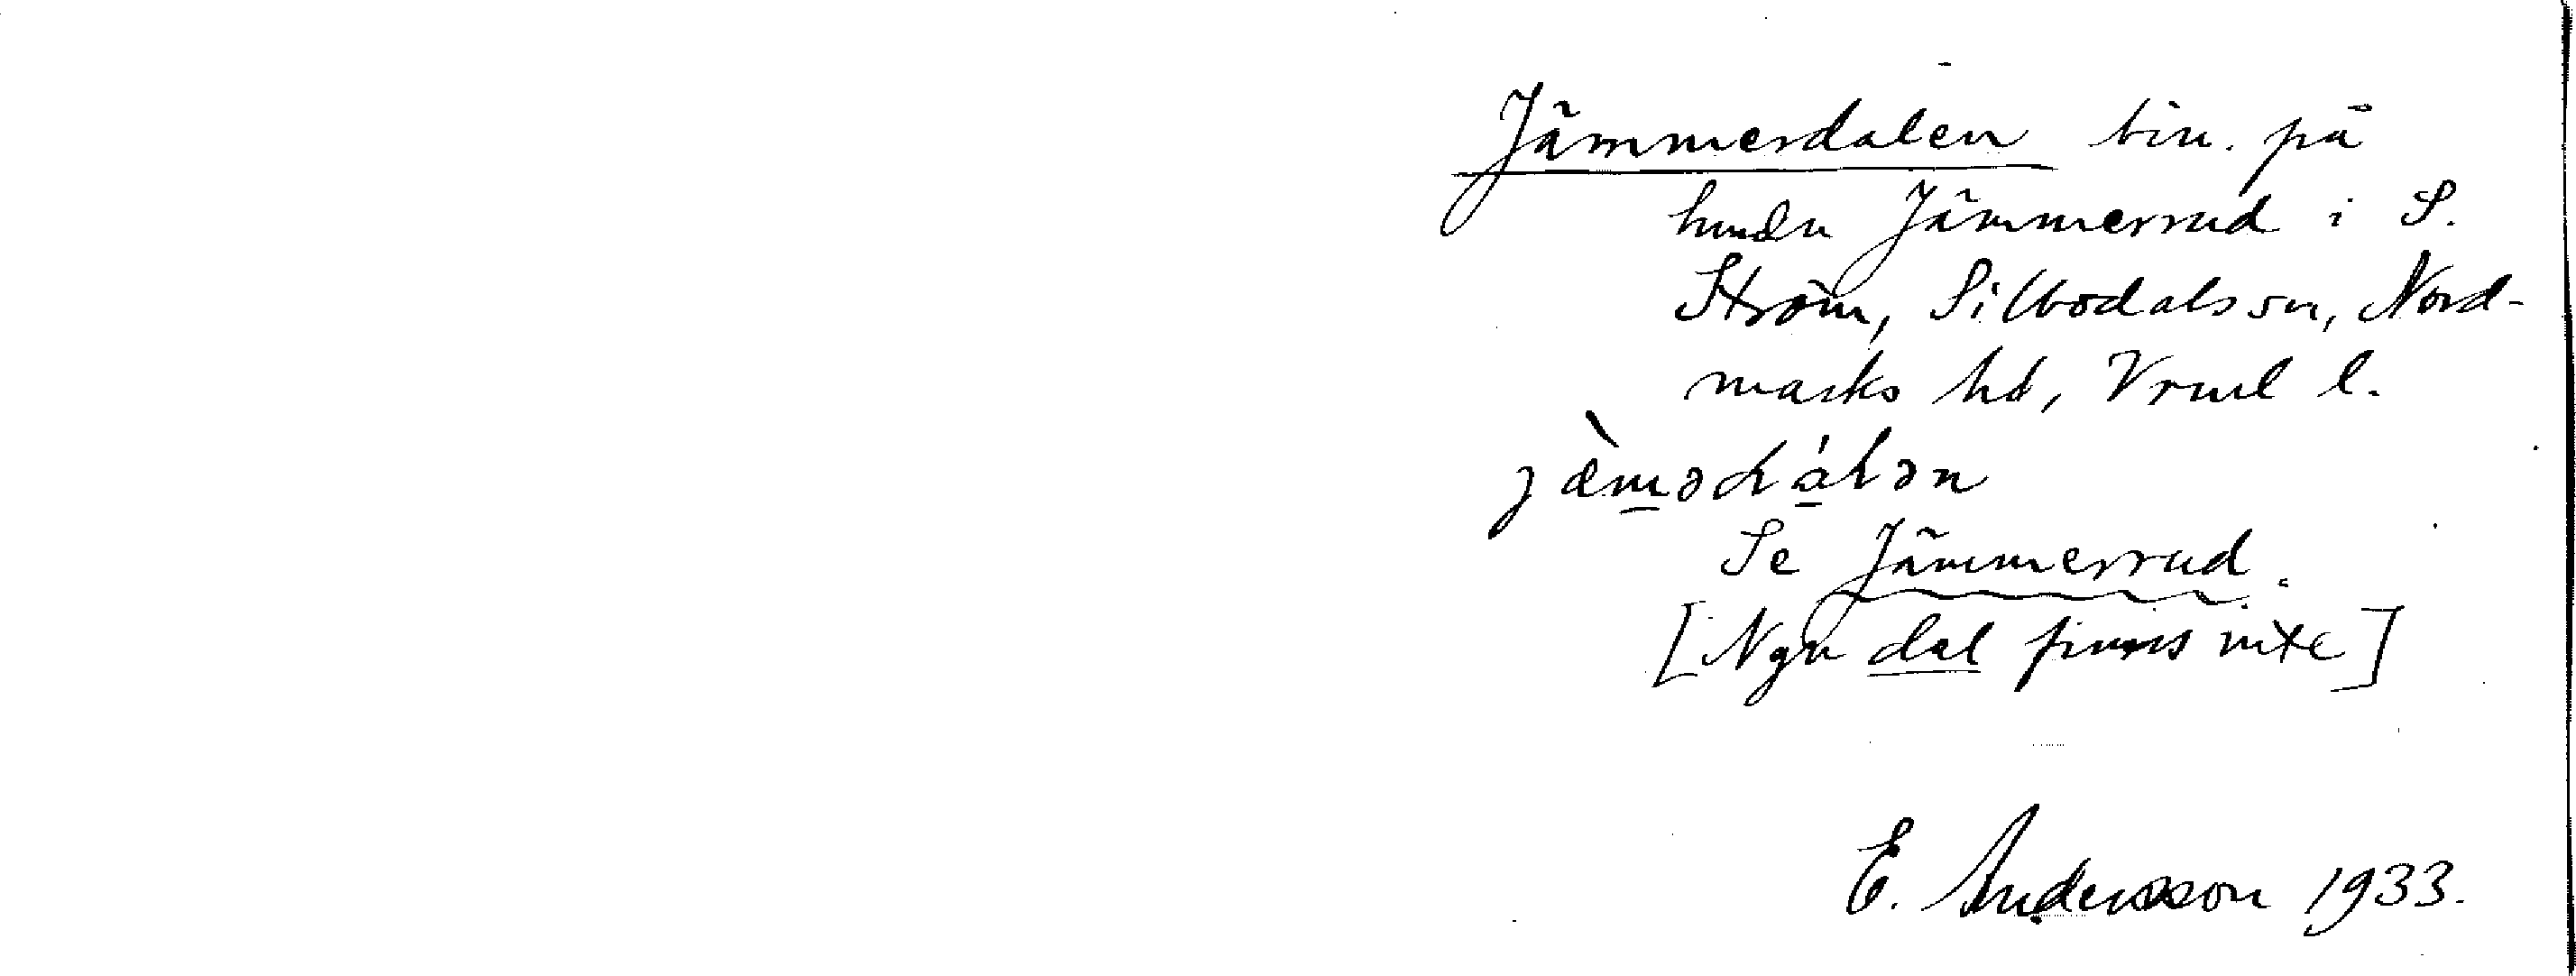 Jämmerdalen bin. på
hmdn Jämmerrud i S.
Ström, Silbodals sn, Nord-
marks hd, Vrml l.
jæ̀mədáḷən
Se Jämmerrud.
[Ngn dal finns inte]
E. Andersson 1933.